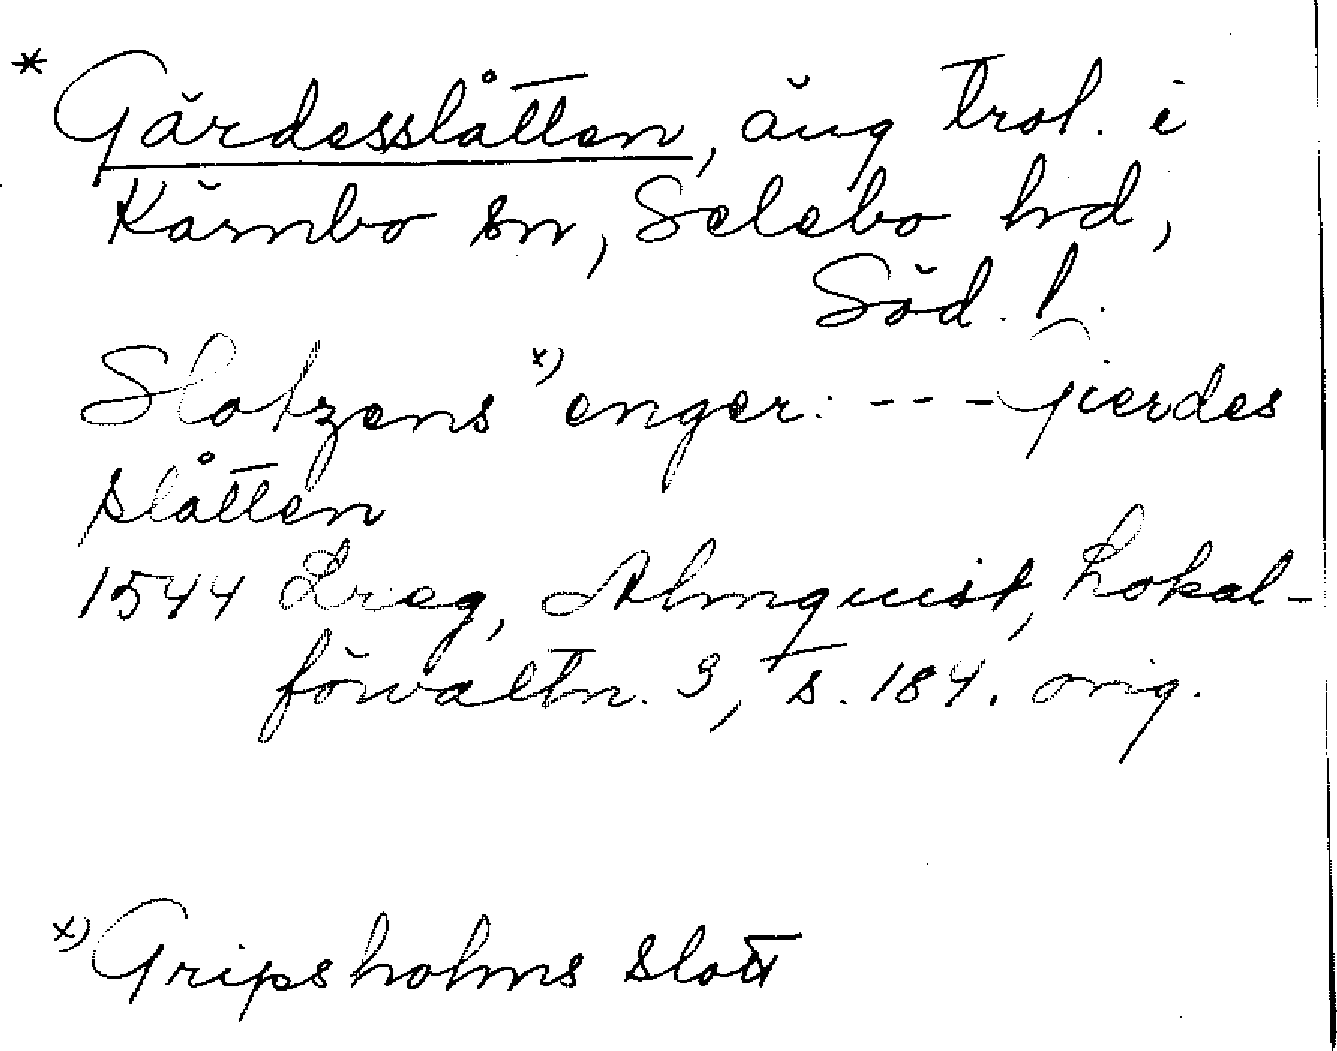 * Gärdesslåtten, äng trol. i
Kärnbo sn, Selebo hd,
Söd. l.
Slotzens x) enger: --- Gierdes
slåtten
1544 Lreg, Almquist, Lokal-
förvaltn. 3, s. 184. orig.
x) Gripsholms slott